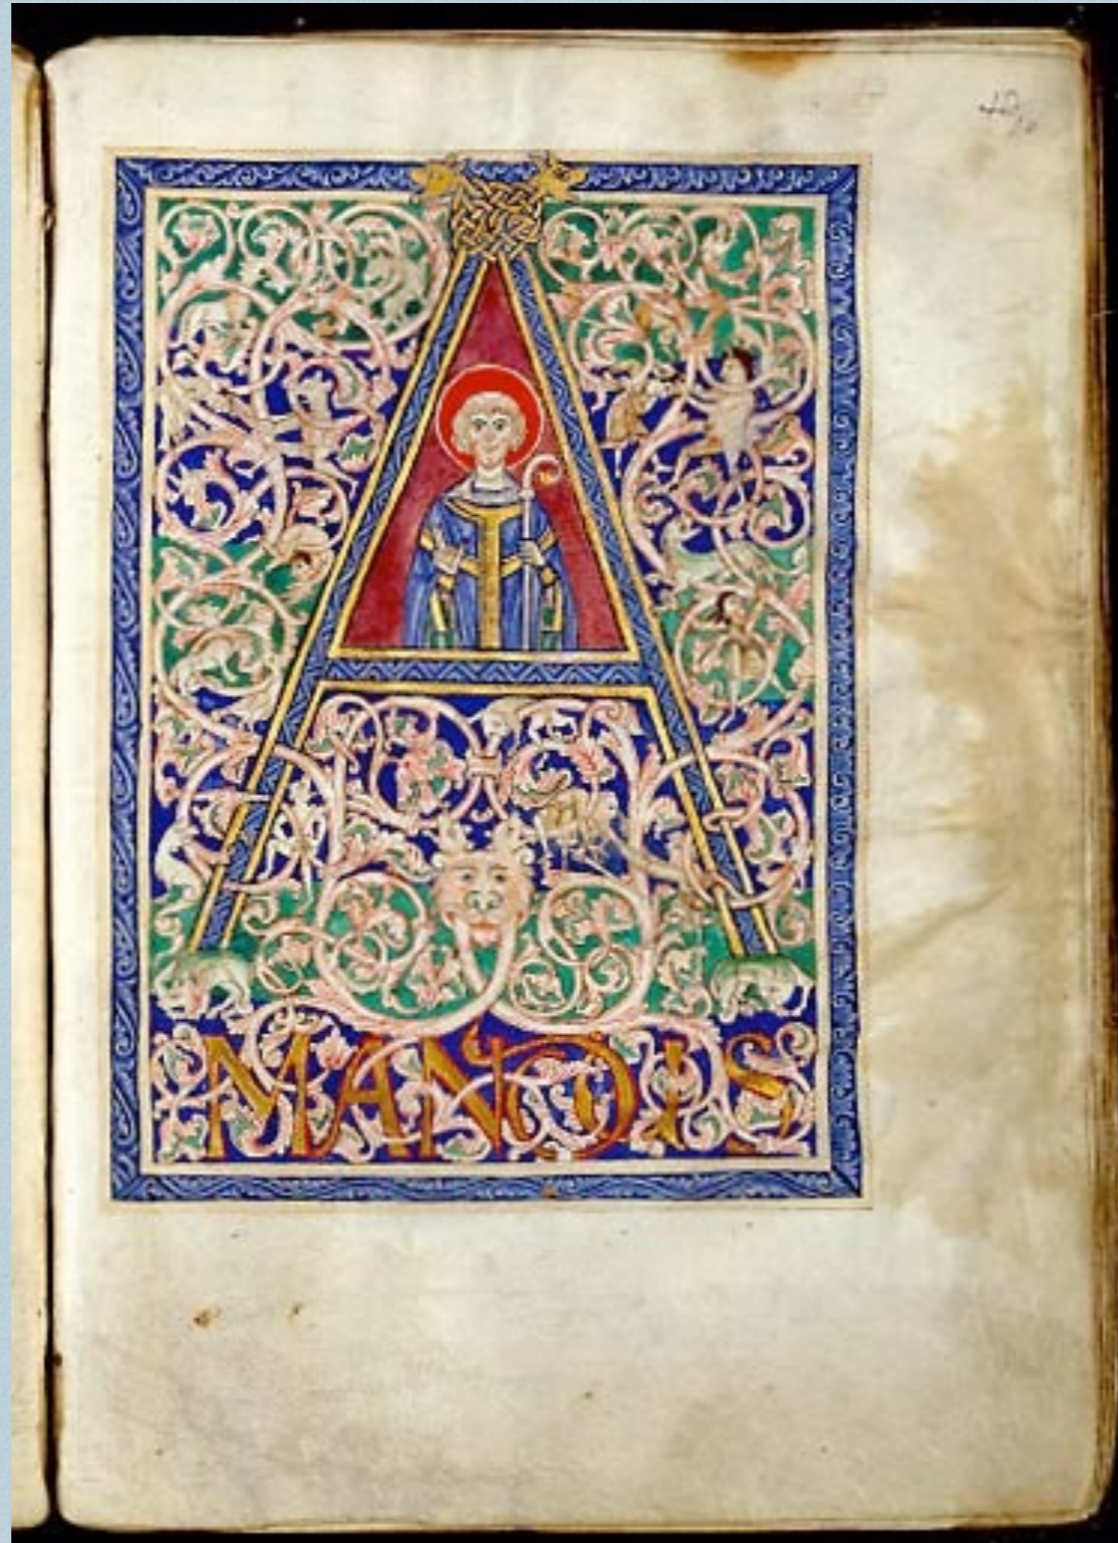 A
MANDIS